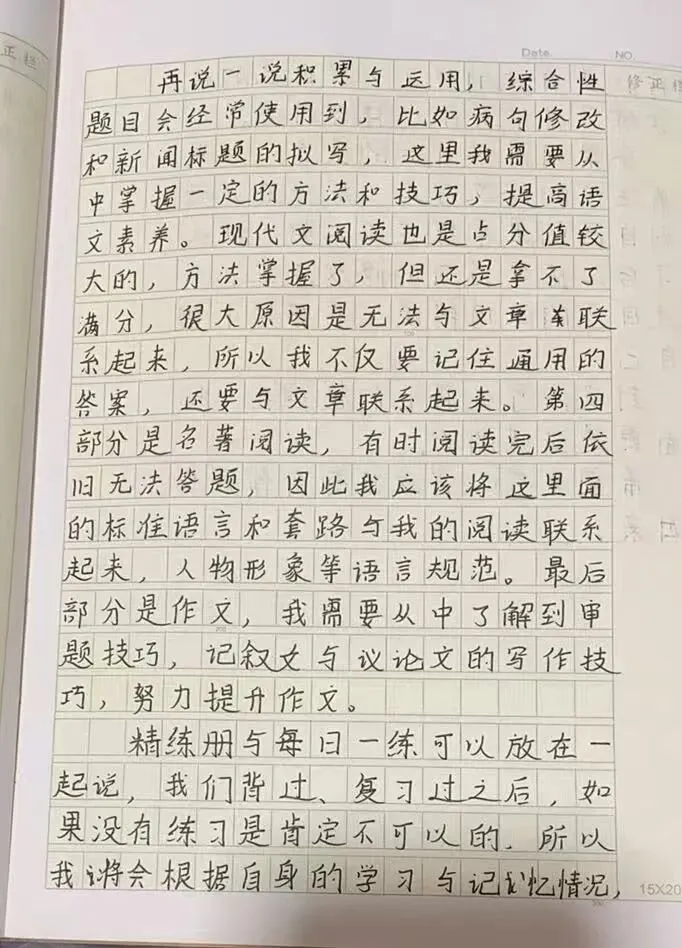 正栏
Date. NO.
修正栏
再说一说积累与运用，综合性
题目会经常使用到，比如病句修改
和新闻标题的拟写，这里我需要从
中掌握一定的方法和技巧，提高语
文素养。现代文阅读也是占分值较
大的，方法掌握了，但还是拿不了
满分，很大原因是无法与文章联
系起来，所以我不仅要记住通用的
答案，还要与文章联系起来。第四
部分是名著阅读，有时阅读完后依
旧无法答题，因此我应该将这里面
的标准语言和套路与我的阅读联系
起来，人物形象等语言规范。最后
部分是作文，我需要从中了解到审
题技巧，记叙文与议论文的写作技
巧，努力提升作文。
精练册与每日一练可以放在一
起说，我们背过、复习过之后，如
果没有练习是肯定不可以的.所以
我将会根据自身的学习与记忆情况，
15X20